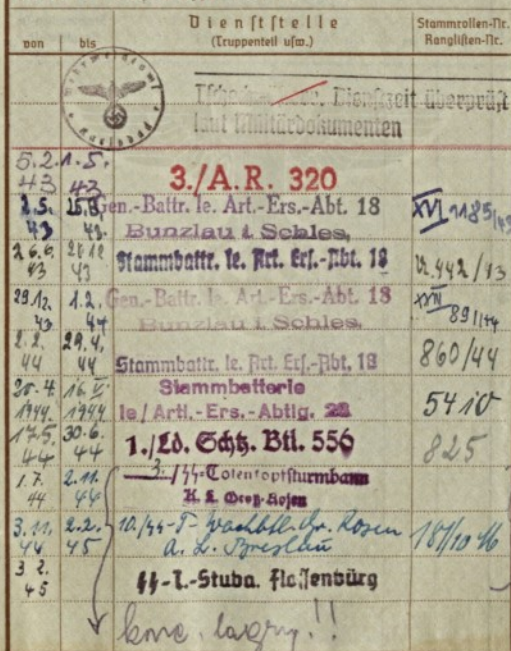 von bis Dienststelle (Truppenteil usw.) Stammrollen-Nr. Ranglisten-Nr.
Dienstzeit überprüft
laut Militärdokumenten
5.2. 43 1.5. 43 3./A.R. 320
2.5. 43 Gen.-Battr. le. Art.-Ers.-Abt. 18 XVI 1185/43
Bunzlau i Schles.
26.6. 43 43 Stammbattr. le. Art. Ers.-Abt. 18 442/43
29.12. 43 1.2. 44 Gen.-Battr. le. Art.-Ers.-Abt. 18 891/44
Bunzlau i Schles.
2.2. 44 29.4. 44 Stammbattr. le. Art. Ers.-Abt. 18 860/44
1944. 1944 Stammbatterie
le/Artl.-Ers.-Abtlg. 28 5410
17.5. 44 30.6. 44 1./Ld. Schtz. Btl. 556 825
1.7. 44 2.11. 44 3./SS-Totenkopfsturmbann
K. L. Groß-Rosen
3.11. 44 2.2. 45 10./SS-T-Wachbtl. Gr. Rosen
A. L. Breslau
3 2. 45 SS-T.-Stuba. Flossenbürg
konc. lagry!!